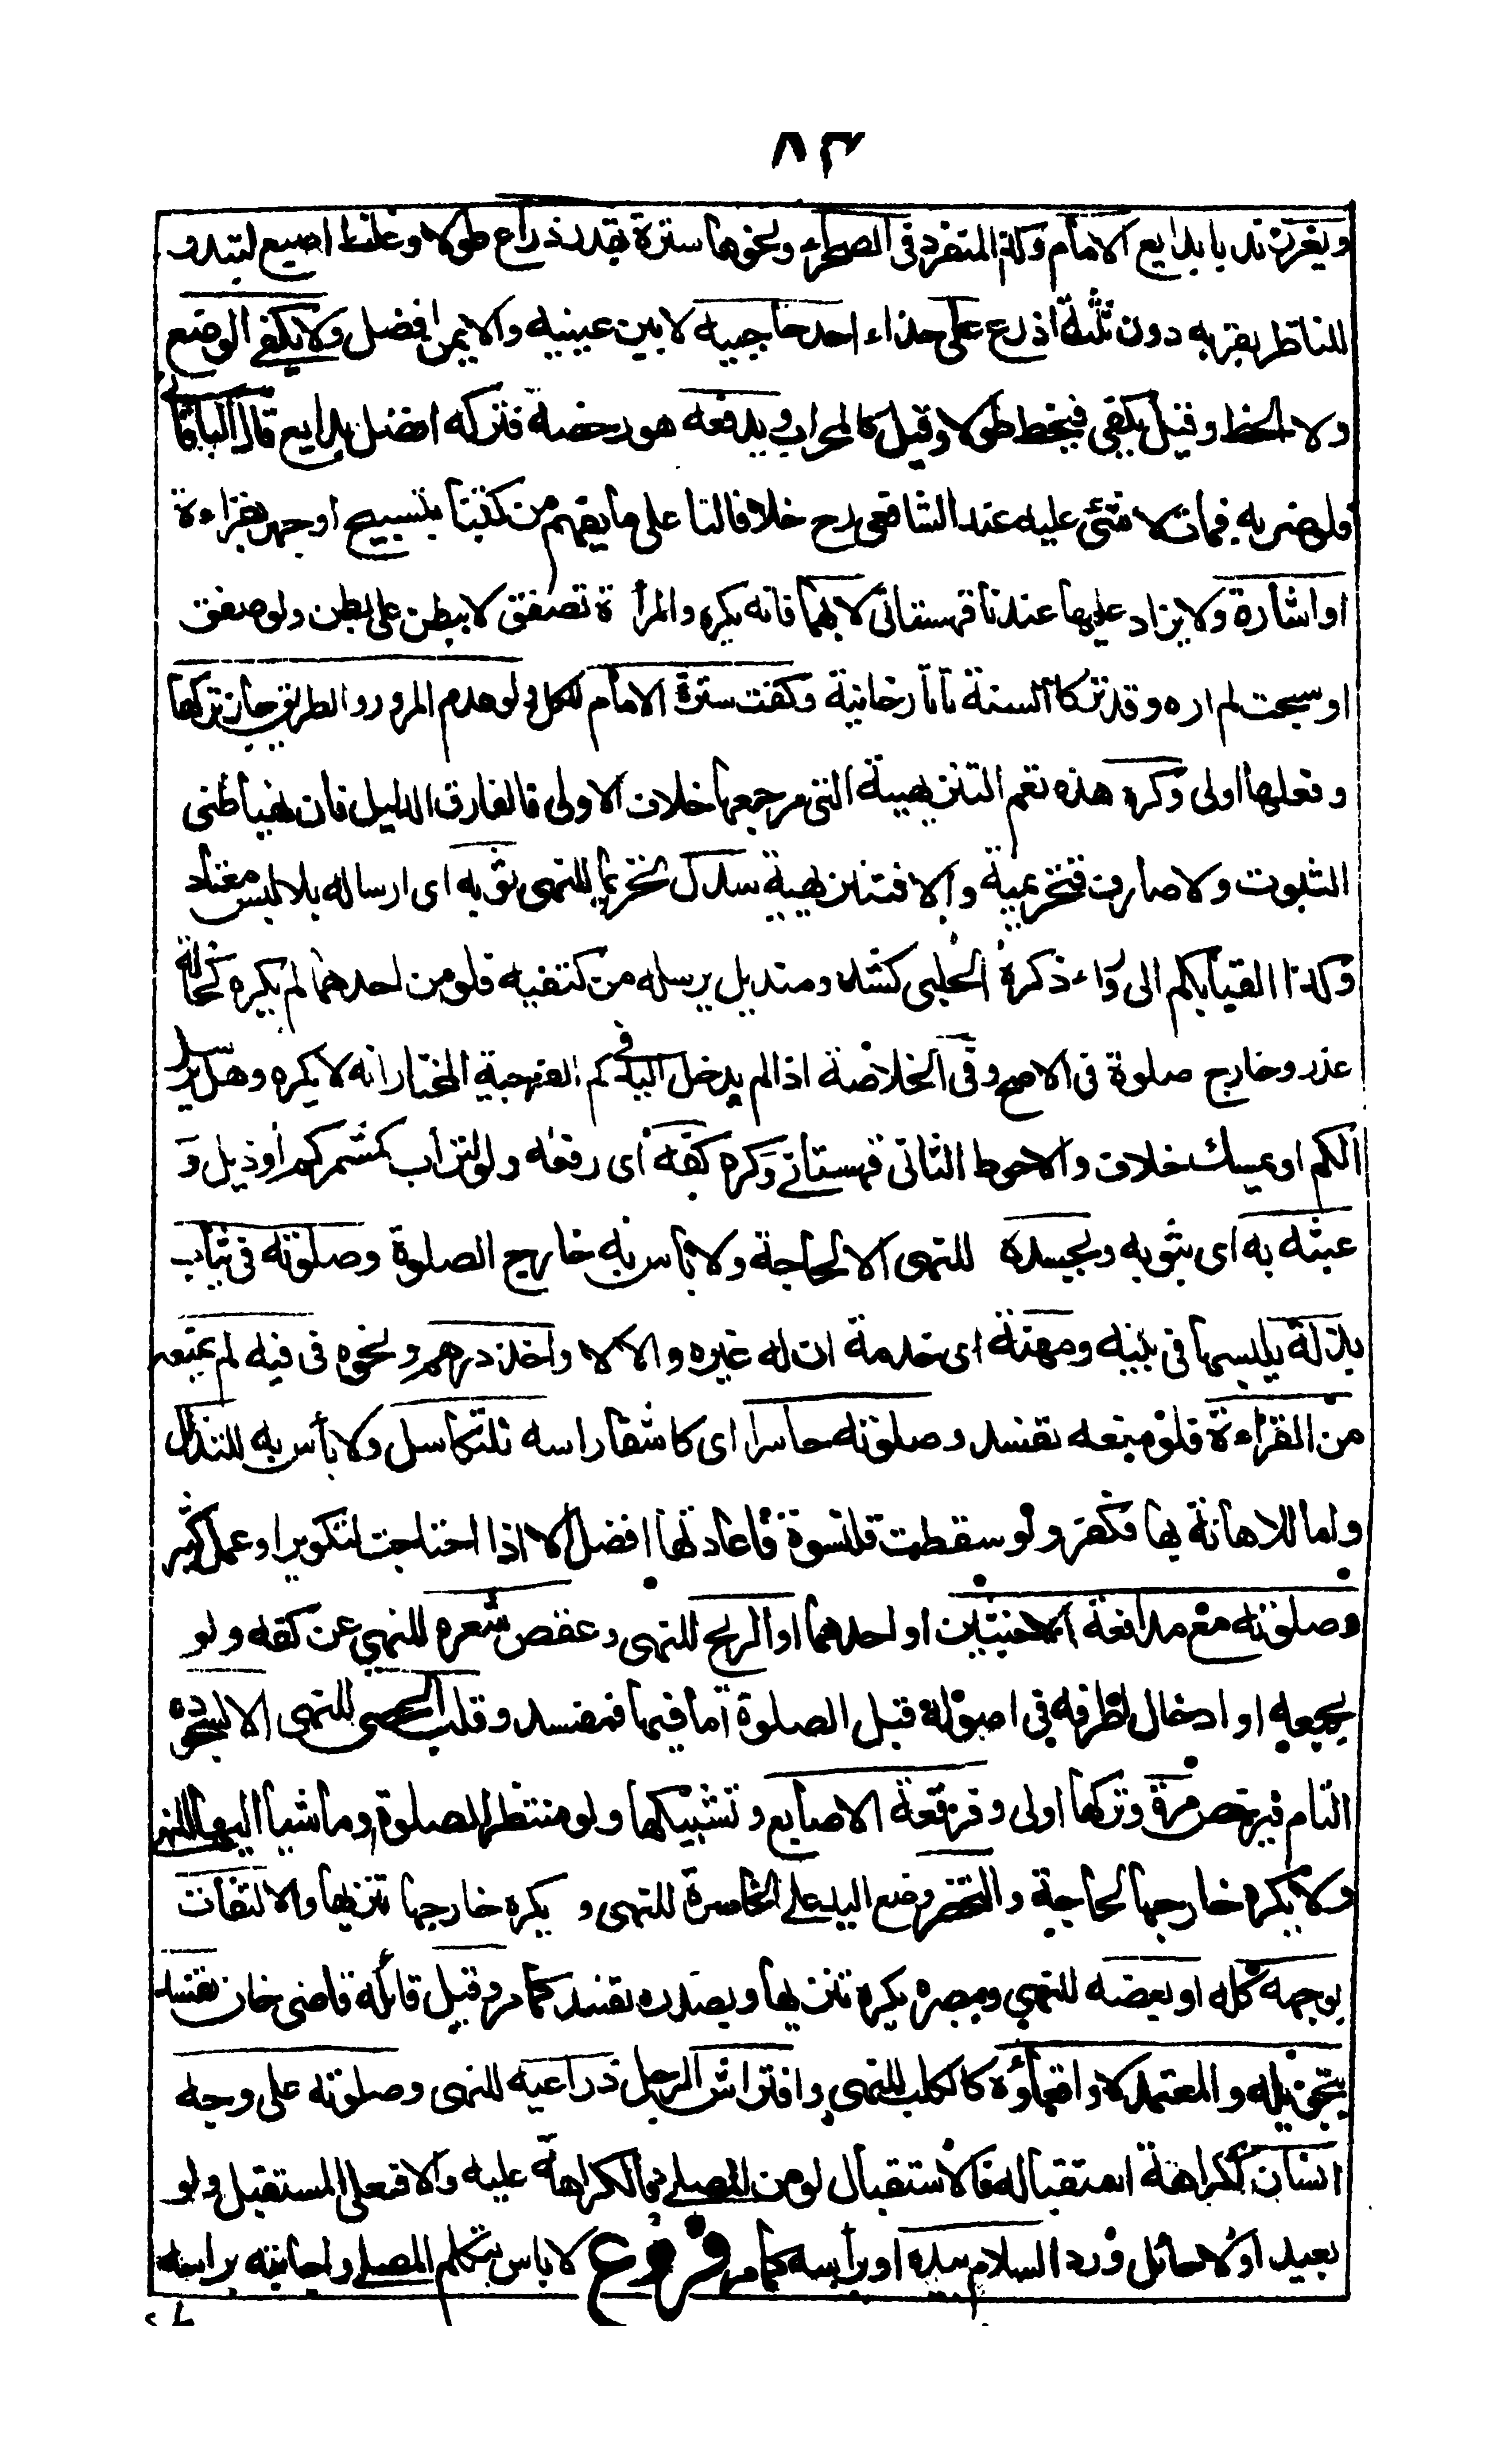 ٨٣
ويغرز ندبا بدايع الامام وكذا المنفرد فى الصحراء ونحوها سترة بقدر ذراع طولا وغلظ اصبع لتبدو
للناظر بقربه دون ثلثة اذرع على حذاء احد حاجبيه لا بين عينيه والايمن افضل ولا يكفى الوضع
ولا الخط وقيل يكفى فيخط طولا وقيل كالمحراب ويدفعه هو رخصة فتركه افضل بدايع قال الباقانى
فلو ضربه فمات لا شئ عليه عند الشافعى رح خلافا لنا على ما يفهم من كتبنا بتسبيح او جهر بقراءة
او اشارة ولا يزاد عليها عندنا قهستانى لا بهما فانه يكره والمرأة تصفق لا ببطن على بطن ولو صفق
او سبحت لم اره وقد تركا السنة تاتارخانية وكفت سترة الامام للكل ولو عدم المرور والطريق جاز تركها
وفعلها اولى وكره هذه تعم التنزيهية التى مرجعها خلاف الاولى فالفارق الدليل فان نهيا ظنى
الثبوت ولا صارف فتحريمية والا فتنزيهية سدل تحريما للنهى ثوبه اى ارساله بلا لبس معتاد
وكذا القبا بكم الى وراء ذكره الحلبى كشد ومنديل يرسله من كتفيه فلو من احدهما لم يكره كحالة
عذر وخارج صلوة فى الاصح وفى الخلاصة اذا لم يدخل اليد فى كم الفرجية المختار انه لا يكره وهل يرسل
الكم او يمسك خلاف والاحوط الثانى قهستانى وكره كفه اى رفعه ولو لتراب كمشمر كم او ذيل و
عبثه به اى بثوبه وبجسده للنهى الا لحاجة ولا باس به خارج الصلوة وصلوته فى ثياب
بذلة يلبسها فى بيته ومهنة اى خدمة ان له غيره والا لا واخذ درهم ونحوه فى فيه لم يمنعه
من القراءة فلو منعه تفسد وصلوته حاسرا اى كاشفا راسه للتكاسل ولا بأس به للتذلل
واما للاهانة بها فكفر ولو سقطت قلنسوة فاعادتها افضل الا اذا احتاجت لتكوير او عمل كثير
وصلوته مع مدافعة الاخبثين او احدهما او الريح للنهى وعقص شعره للنهى عن كفه ولو
بجمعه او ادخال اطرافه فى اصوله قبل الصلوة اما فيها فمفسد وقلب الحصى للنهى الا لسجوده
التام فيرخص مرة وتركها اولى وفرقعة الاصابع وتشبيكها ولو منتظرا لصلوة وماشيا اليها للنهى
ولا يكره خارجها لحاجة والتخصر وضع اليد على الخاصرة للنهى و يكره خارجها تنزيها والالتفات
بوجهه كله او بعضه للنهى وببصره يكره تنزيها وبصدره تفسد كما مر وقيل قائله قاضى خان تفسد
بتحويله والمعتمد لا واقعاؤه كالكلب للنهى وافتراش الرجل ذراعيه للنهى وصلوته على وجه
انسان ككراهة استقباله فالاستقبال لو من المصلى فالكراهة عليه والا فعلى المستقبل ولو
بعيدا ولا حائل ورد السلام بيده او براسه كما مر فروع لا باس بتكلم المصلى واجابته براسه